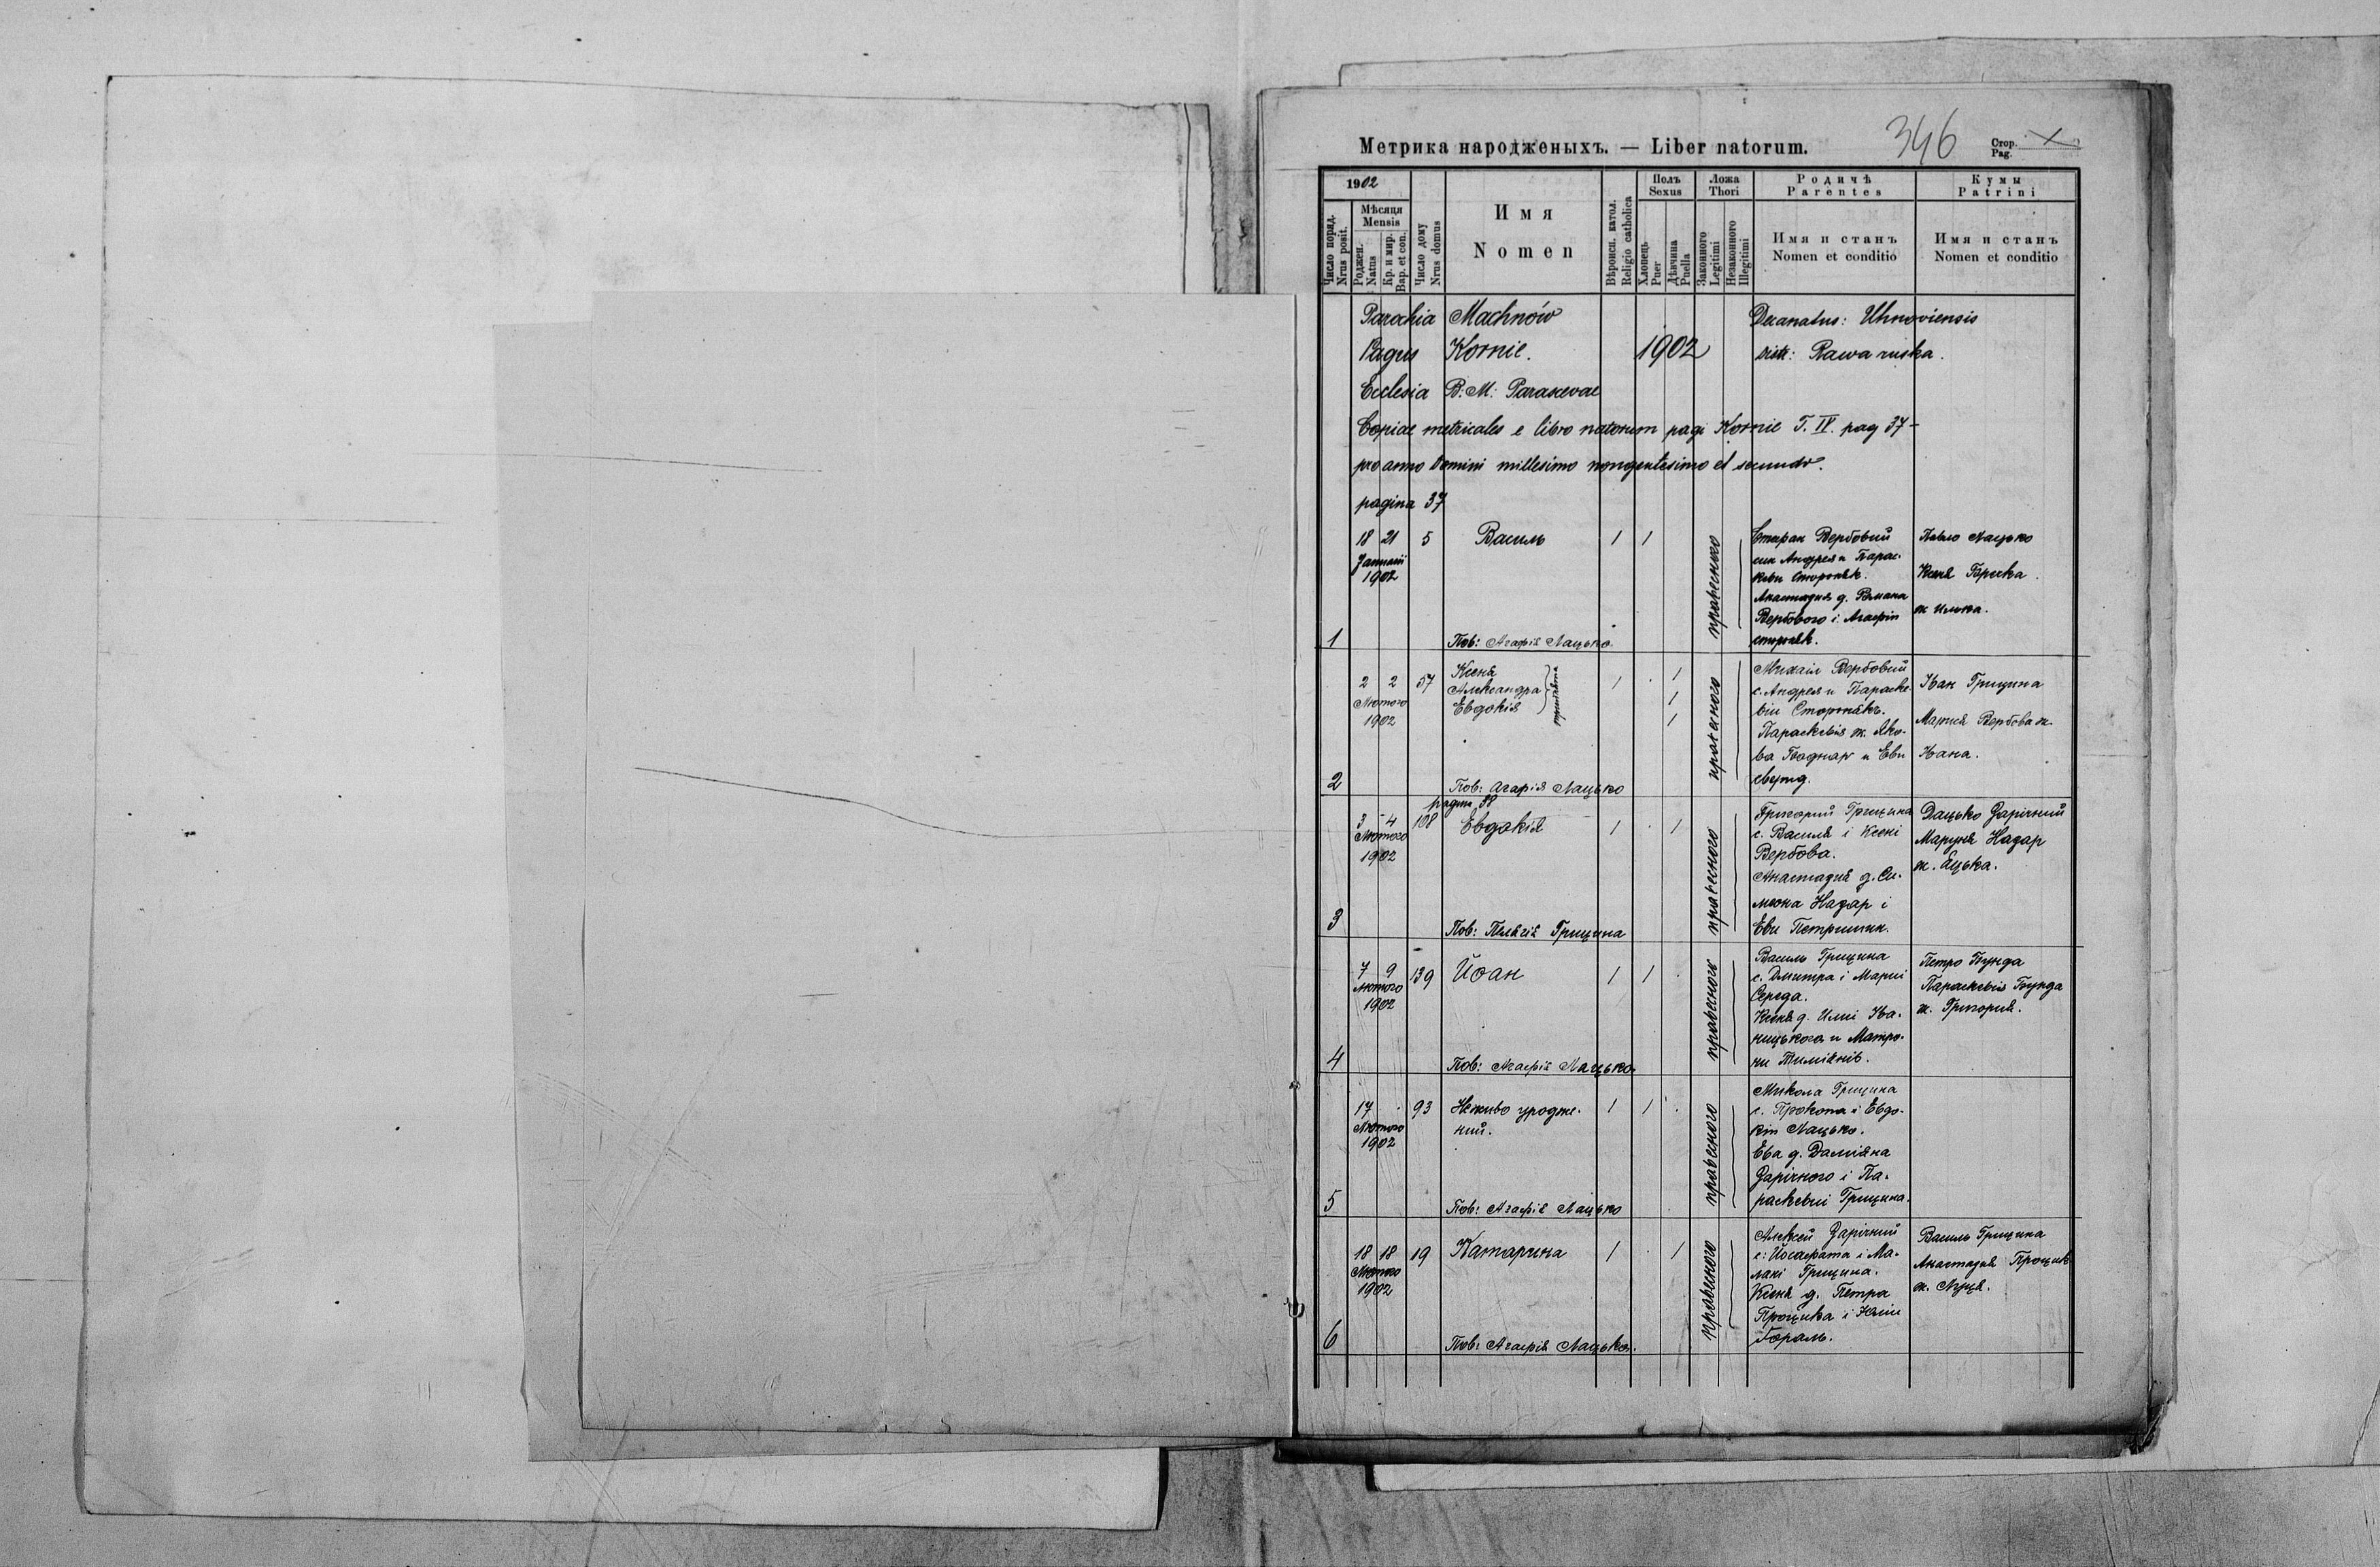 Метрика народженыхъ. — Liber natorum.
346
Стор.
Pag.
1902
Число поряд.
Nrus posit.
Мѣсяця
Mensis
Роджен.
Natus
Кр. и мир.
Bap. et con.
Число дому
Nrus domus
Имя
Nomen
Вѣроисп. катол.
Religio catholica
Полъ
Sexus
Хлопецъ
Puer
Дѣвчина
Puella
Ложа
Thori
Законного
Legitimi
Незаконного
Illegitimi
Родичѣ
Parentes
Имя и станъ
Nomen et conditio
Кумы
Patrini
Имя и станъ
Nomen et conditio
Parochia Machnów Decanatus: Uhnoviensis
Pagus Kornie. 1902 Distr: Rawa ruska.
Ecclesia B: M: Parascevae
Copiae metricales e libro natorum pagi Kornie T. IV. pag 37-
pro anno Domini millesimo nongentesimo et secundo.
pagina 37
1
18 21
Januarii
1902
5
Василь
1 1
правесного
Стефан Вербовий
син Андрея и Парас-
кеви
Анастазия д. Романа
Вербового і Агафії
Павло Лацько
Ксеня
ж Илька.
Пов: Агафія Лацько.
2
2 2
Лютого
1902
57
Ксеня
Александра
Евдокія
1 1
1
1
правесного
Михаіл Вербовий
с. Андрея и Параске-
віи
Параскевія ж. Яко-
ва Боднар и Еви
Иван Грицина
Мария Вербова ж.
Ивана.
Пов: Агафія Лацько
pagina 38
3
3 4
Лютого
1902
108
Евдокія
1 1
правесного
Григорий Грицина
с. Василя і Ксені
Вербова.
Анастазия д. Си-
меона Назар і
Еви Петришин.
Дацько Зарічний
Маруня Назар
ж. Яцька.
Пов: Пелагія Грицина
4
7 9
Лютого
1902
139
Йоан
1 1
правесного
Василь Грицина
с. Дмитра і Марії
Середа.
Ксеня д. Илиі Ива-
ницького и Матро-
ни
Петро Бунда
Параскевія Бунда
ж. Григория.
Пов: Агафія Лацько.
5
17
Лютого
1902
93
Неживо уродже-
ний.
1 1
правесного
Микола Грицина
с. Прокопа и Евдо-
кіи Лацько.
Ева д. Даміяна
Зарічного і Па-
раскевиі Грицина.
Пов: Агафія Лацько
6
18 18
Лютого
1902
19
Катарина
1 1
правесного
Алексей Зарічний
с. Йосафата і Ма-
лакі Грицина.
Ксеня д. Петра
Процика і Юлии
Гораль.
Василь Грицина
Анастазия Процик
ж. Луця.
Пов: Агафія Лацько.